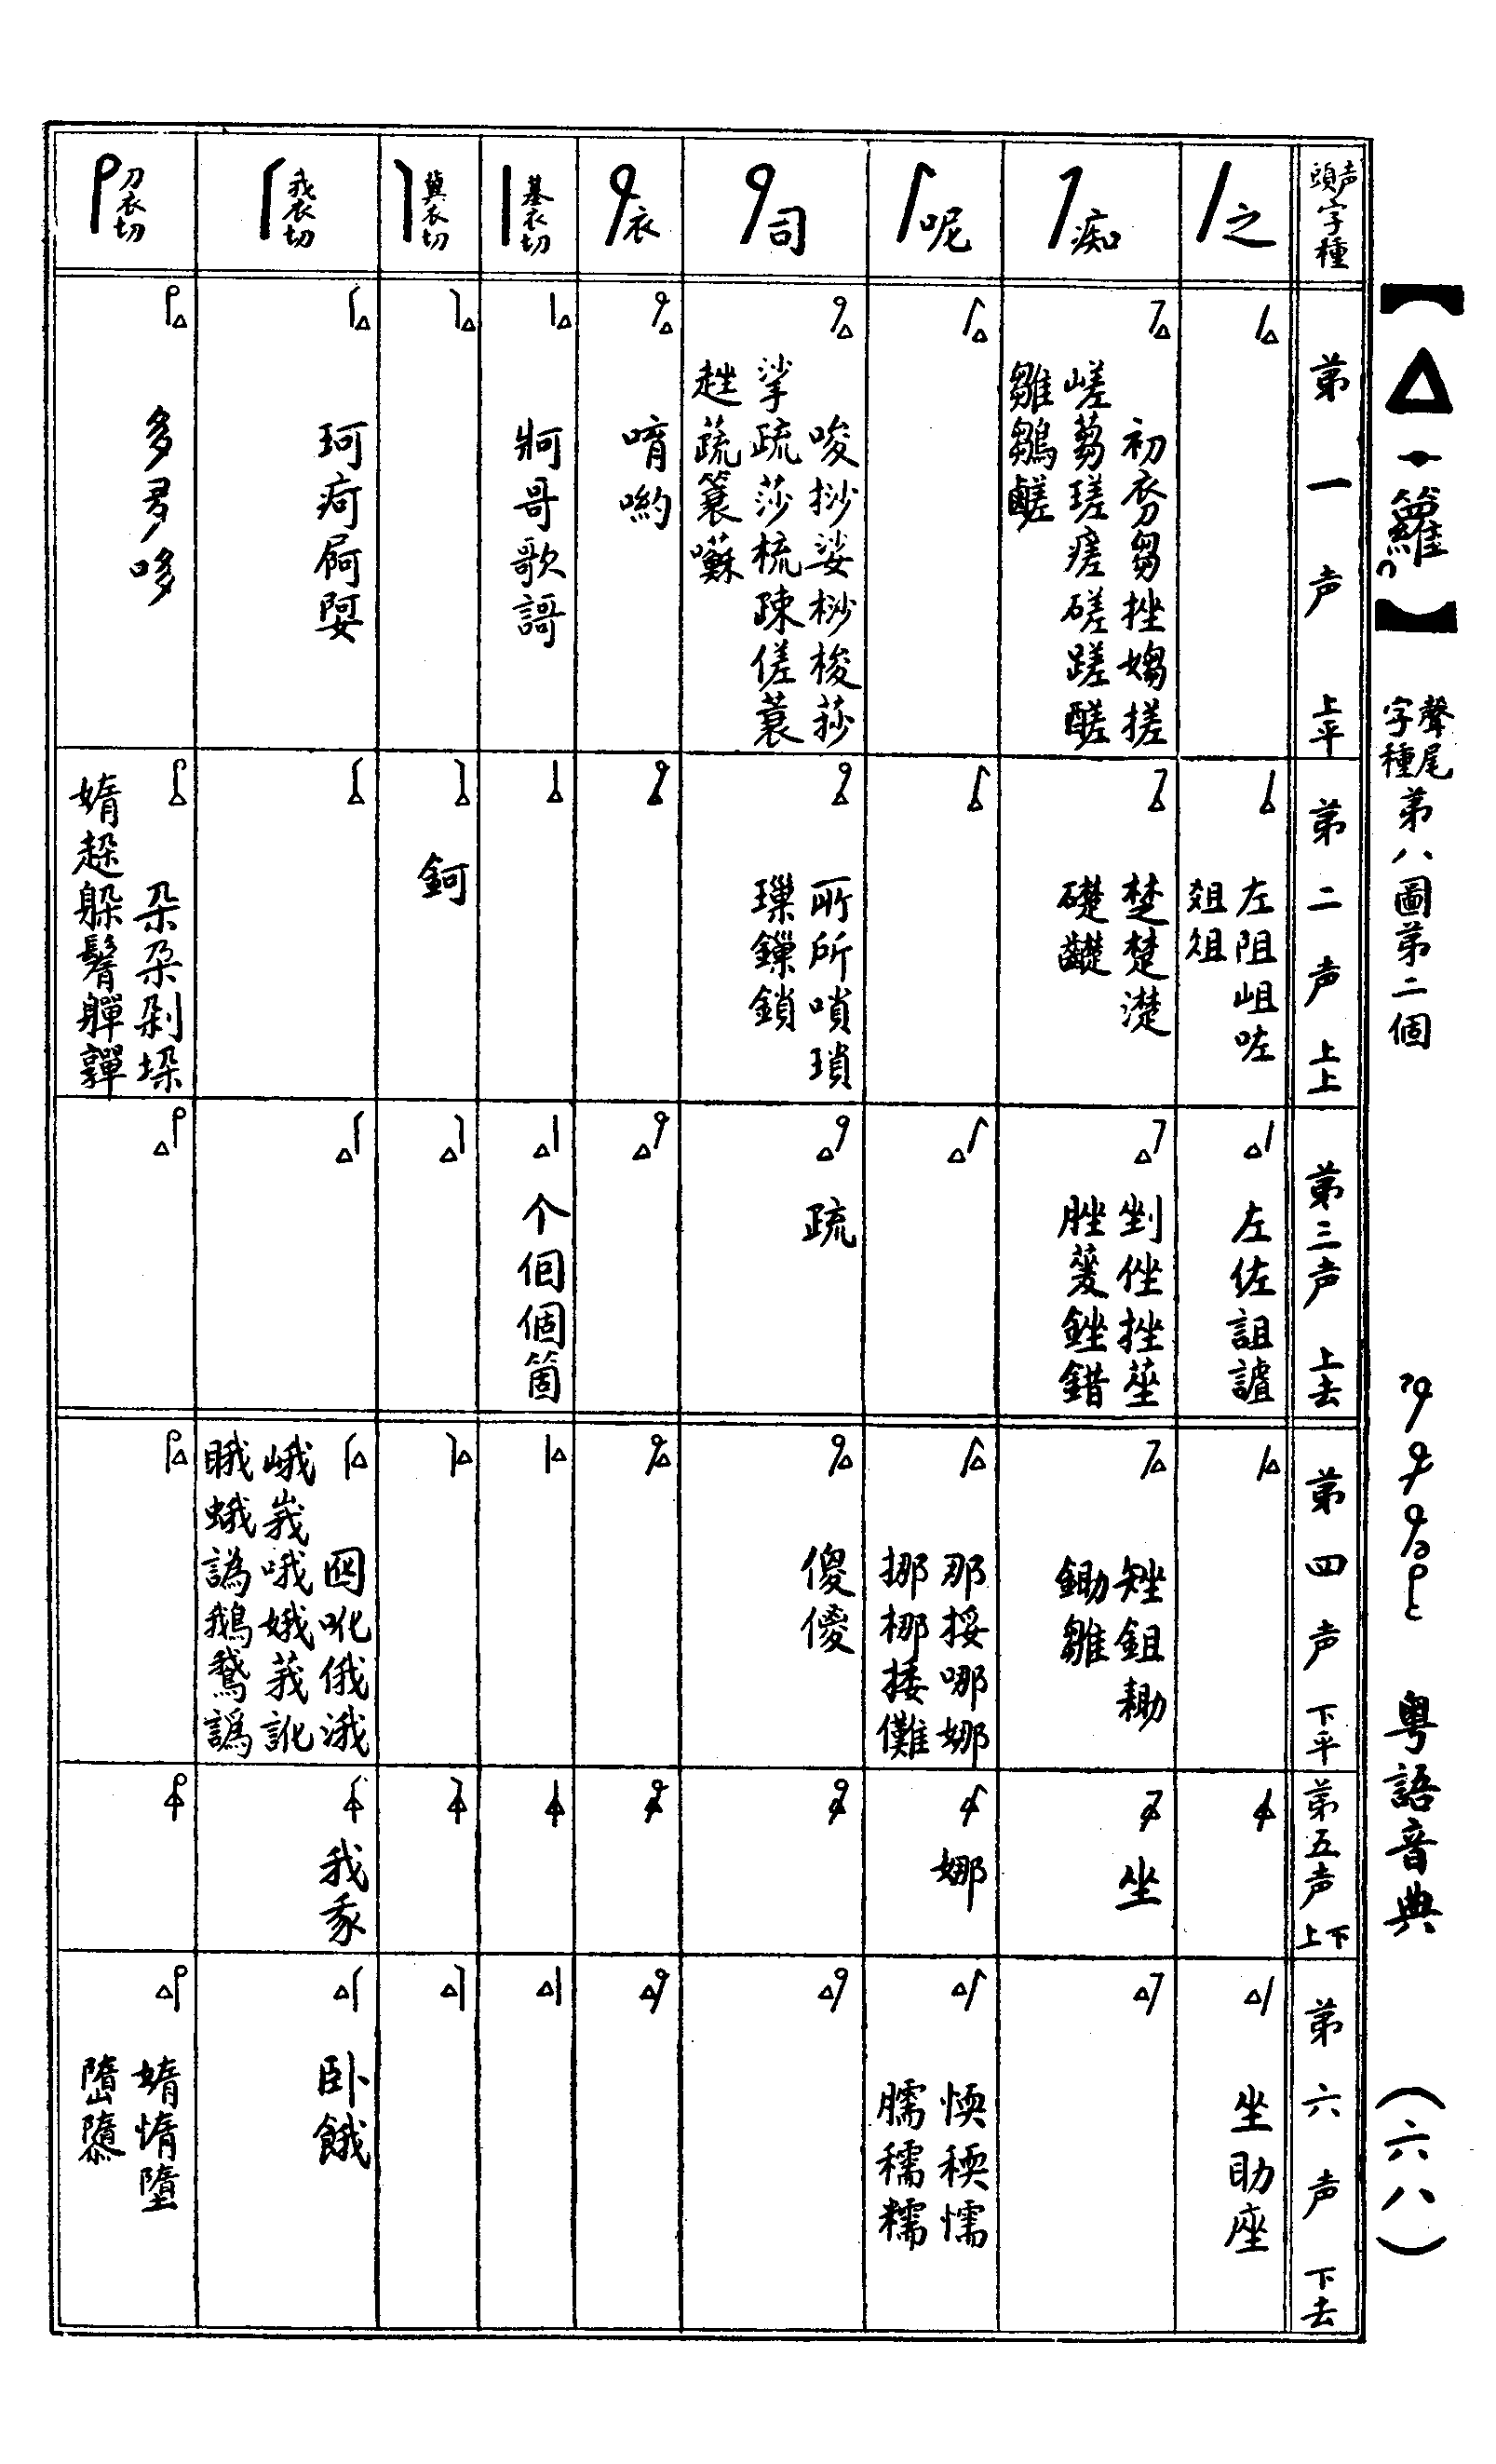 【△
籮】
聲尾
字種
第八圖第二個
粵語音典
(六八)
声頭字種
第一声 上平
第二声 上上
第三声 上去
第四声 下平
第五声 下上
第六声 下去
之
左阻岨咗
爼俎
左佐詛謯
坐助座
痴
初刍芻挫媰搓
嵯蒭瑳瘥磋蹉醝
雛鶵齹
椘楚濋
礎齼
剉侳挫莝
脞蓌銼錯
矬鉏耡
鋤雛
坐
呢
那挼哪娜
挪梛捼儺
娜
愞稬懦
臑穤糯
司
唆挱娑桫梭莏
挲疏莎梳踈傞蓑
趖蔬簑囌
所所嗩瑣
璅鏁鎖
疏
傻儍
衣
唷喲
基衣切
牁哥歌謌
个佪個箇
冀衣切
鈳
我衣切
珂疴屙娿
囮吪俄涐
峨峩哦娥莪訛
睋蛾譌鵝鵞譌
我豙
卧餓
刀衣切
多夛哆
朵朶剁垜
媠趓躲鬌嚲
媠惰墮